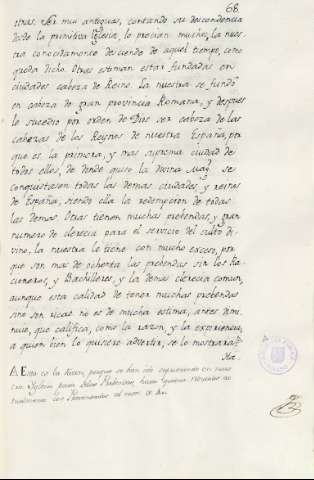 68.
otras. Ser mui antiguas, contando su descendencia
desde la primitiva Iglesia, lo precian mucho; la nues-
tra conocidamente desciende de aquel tiempo, como
queda dicho. Otras estiman estar fundadas en
ciudades cabeza de Reino. La nuestra se fundó
en cabeza de gran provincia Romana, y despues
le sucedio por orden de Dios ser cabeza de las
cabezas de los Reynos de nuestra España, por
que es la primera, y mas suprema ciudad de
todas ellas, de donde quiso la divina Magd. se
conquistasen todas las demas ciudades y reinos
de España, siendo ella la redempcion de todas
las demas. Otras tienen muchas prebendas, y gran
numero de clerecia para el servicio del culto di-
vino, la nuestra le tiene con mucho exceso, por
que son mas de ochenta las prebendas sin los Ra-
cioneros, y Bachilleres, y la demas clerecia comun,
aunque esta calidad de tener muchas prebendas
sino son ricas no es de mucha estima, antes dimi-
nuie, que califica, como la razon, y la experiencia,
a quien bien lo quisiere advertir, se lo mostrara.
Esta es la razon, porque se han ido suprimiendo en nues-
tra Iglesia